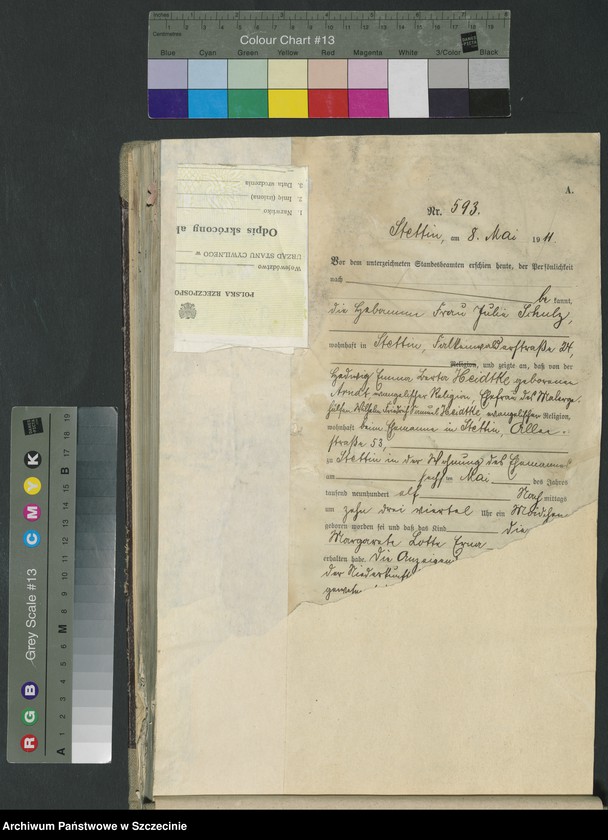 Inches 1 2 3 4 5 6 7 8
Centimetres 1 2 3 4 5 6 7 8 9 10 11 12 13 14 15 16 17 18 19
Colour Chart #13
Blue Cyan Green Yellow Red Magenta White 3/Color Black
POLSKA RZECZPOSPO
Województwo
URZĄD STANU CYWILNEGO w
Odpis skrócony ak
1. Nazwisko
2. Imię (imiona)
3. Data urodzenia
A.
Nr. 593.
Stettin, am 8. Mai 1911
Vor dem unterzeichneten Standesbeamten erschien heute, der Persönlichkeit
nach
be kannt,
die Hebamme Frau Julie Schulz,
wohnhaft in Stettin, Falkenwalderstraße 24,
Religion, und zeigte an, daß von der
Hedwig Emma Berta Heidtke geborenen
Arndt evangelischer Religion, Ehefrau des Malerge-
hilfen Wilhelm Friedrich Samuel Heidtke, evangelischer Religion,
wohnhaft beim Ehemanne in Stettin, Allee-
straße 53,
zu Stettin in der Wohnung des Ehemannes
am sechsten Mai des Jahres
tausend neunhundert elf Nach mittags
um zehn drei viertel Uhr ein Mädchen
geboren worden sei und daß das Kind die
Margarete Lotte Erna
erhalten habe. Die Anzeigend
der Niederkunft
gewese
Grey Scale #13
R G B C M Y K
A 1 2 3 4 5 6 M 8 9 10 11 12 13 14 15 B 17 18 19
Archiwum Państwowe w Szczecinie